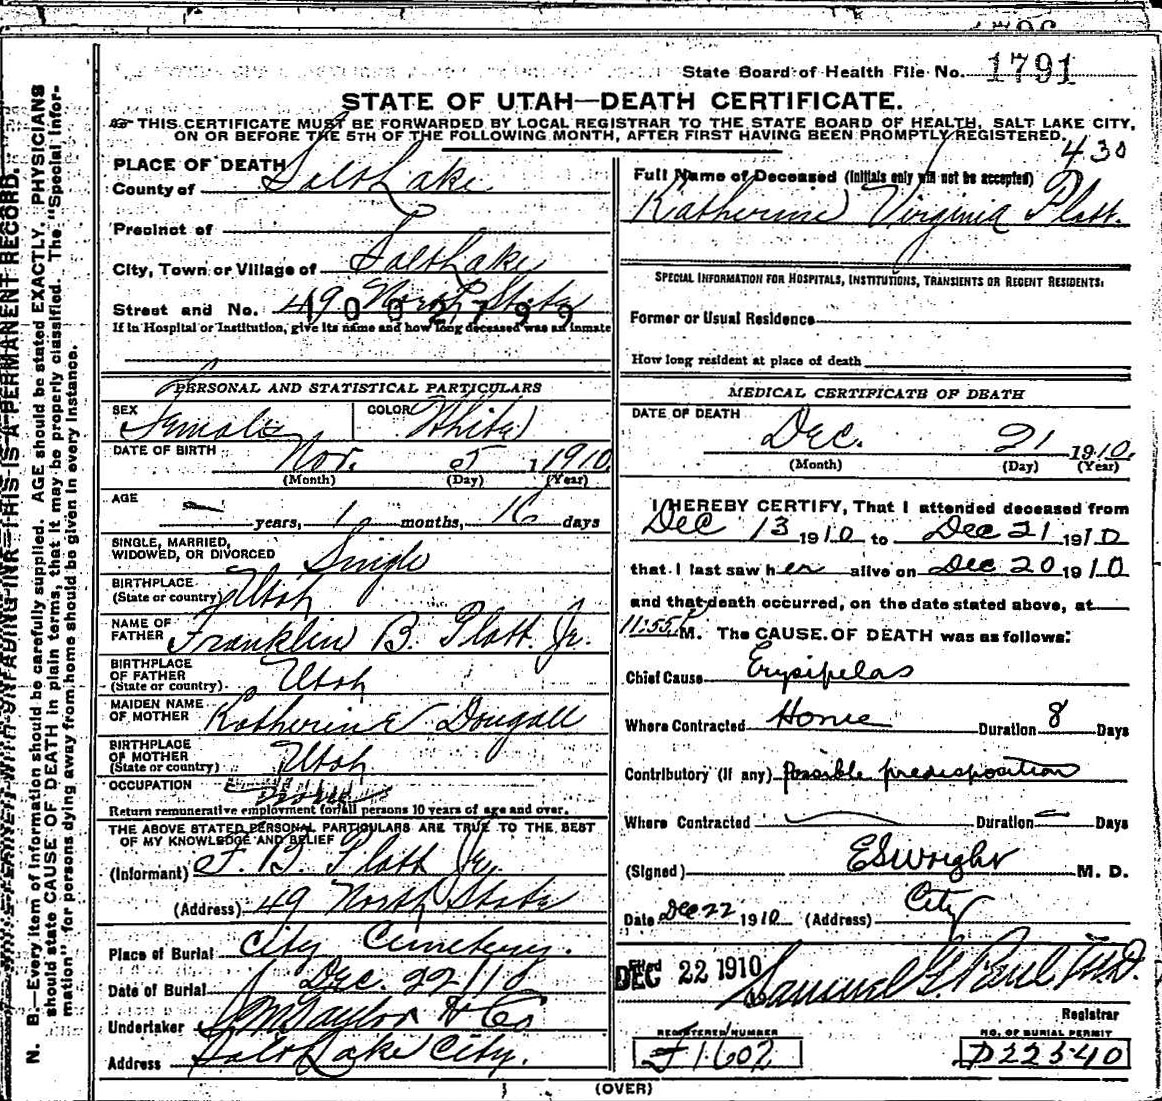 State Board of Health File No. 1791
STATE OF UTAH—DEATH CERTIFICATE.
THIS CERTIFICATE MUST BE FORWARDED BY LOCAL REGISTRAR TO THE STATE BOARD OF HEALTH, SALT LAKE CITY,
ON OR BEFORE THE 5TH OF THE FOLLOWING MONTH, AFTER FIRST HAVING BEEN PROMPTLY REGISTERED.
430
PLACE OF DEATH
County of Salt Lake
Precinct of
City, Town or Village of Salt Lake
Street and No. 49 North State
1002799
If in Hospital or Institution, give its name and how long deceased was an inmate
PERSONAL AND STATISTICAL PARTICULARS
SEX Female COLOR White
DATE OF BIRTH Nov. 5, 1910
(Month) (Day) (Year)
AGE — years, 1 months, 16 days
SINGLE, MARRIED,
WIDOWED, OR DIVORCED Single
BIRTHPLACE
(State or country) Utah
NAME OF
FATHER Franklin B. Platt Jr.
BIRTHPLACE
OF FATHER
(State or country) Utah
MAIDEN NAME
OF MOTHER Katherine Dougall
BIRTHPLACE
OF MOTHER
(State or country) Utah
OCCUPATION
Return remunerative employment for all persons 10 years of age and over.
THE ABOVE STATED PERSONAL PARTICULARS ARE TRUE TO THE BEST
OF MY KNOWLEDGE AND BELIEF
(Informant) F. B. Platt Jr.
(Address) 49 North State
Place of Burial City Cemetery.
Date of Burial Dec. 22/10
Undertaker S. M. Taylor & Co
Address Salt Lake City.
Full Name of Deceased (Initials only will not be accepted)
Katherine Virginia Platt.
SPECIAL INFORMATION FOR HOSPITALS, INSTITUTIONS, TRANSIENTS OR RECENT RESIDENTS:
Former or Usual Residence
How long resident at place of death
MEDICAL CERTIFICATE OF DEATH
DATE OF DEATH
Dec. 21 1910.
(Month) (Day) (Year)
I HEREBY CERTIFY, That I attended deceased from
Dec 13 1910 to Dec 21 1910
that I last saw her alive on Dec 20 1910
and that death occurred, on the date stated above, at
11:55 P M. The CAUSE OF DEATH was as follows:
Chief Cause Erysipelas
Where Contracted Home Duration 8 Days
Contributory (if any) Possible predisposition
Where Contracted Duration — Days
(Signed) E S Wright M. D.
Date Dec 22 1910 (Address) City
Filed
DEC 22 1910 Samuel G. Paul M.D.
Registrar
REGISTERED NUMBER
F1602
NO. OF BURIAL PERMIT
D22540
(OVER)
N. B.—Every item of information should be carefully supplied. AGE should be stated EXACTLY. PHYSICIANS
should state CAUSE OF DEATH in plain terms, that it may be properly classified. The "Special Infor-
mation" for persons dying away from home should be given in every instance.
WITH UNFADING INK—THIS IS A PERMANENT RECORD.